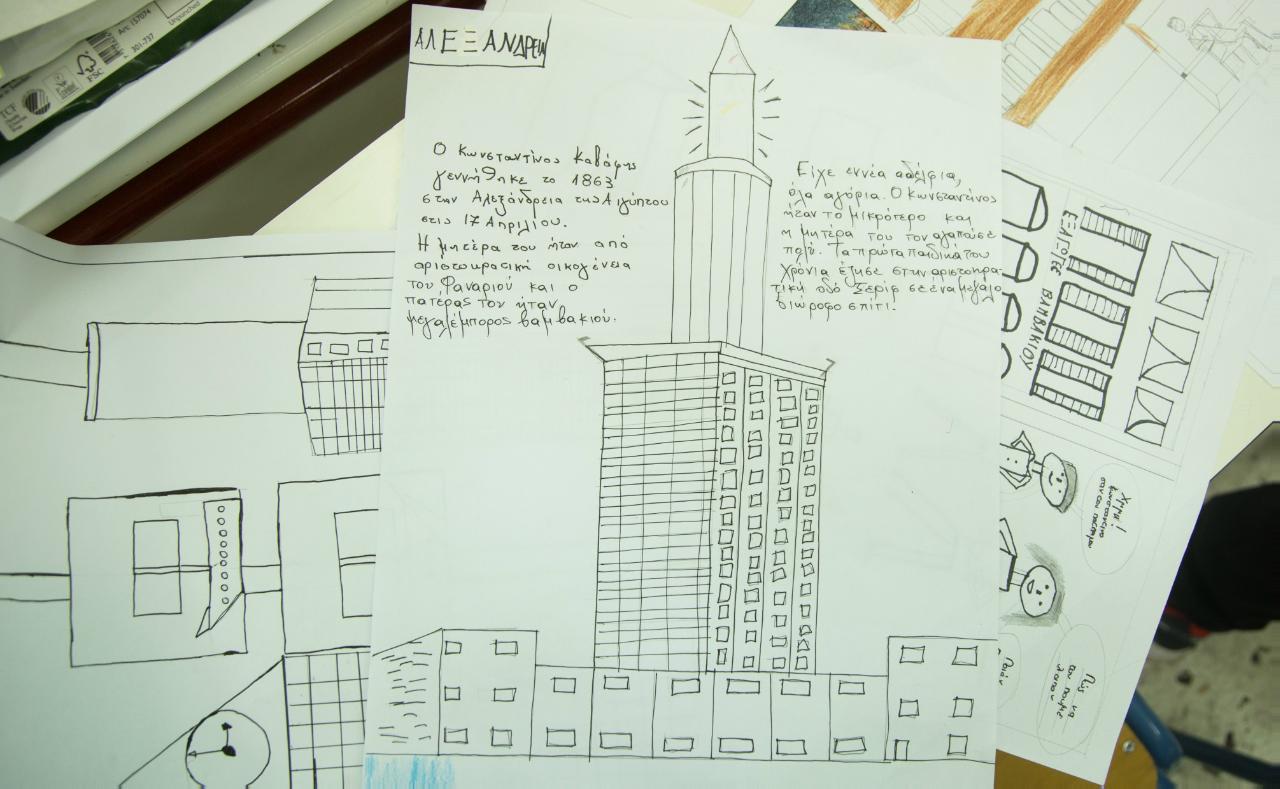 ΑΛΕΞΑΝΔΡΕΙΑ
Ο Κωνσταντίνος Καβάφης
γεννήθηκε το 1863
στην Αλεξάνδρεια της Αιγύπτου
στις 17 Απριλίου.
Η μητέρα του ήταν από
αριστοκρατική οικογένεια
του Φαναριού και ο
πατέρας του ήταν
μεγαλέμπορος βαμβακιού.
Είχε εννέα αδέλφια,
όλα αγόρια. Ο Κωνσταντίνος
ήταν το μικρότερο και
η μητέρα του τον αγαπούσε
πολύ. Τα πρώτα παιδικά του
χρόνια έζησε στην αριστοκρα-
τική οδό Σερίφ σε ένα μεγάλο
διώροφο σπίτι.
ΒΑΜΒΑΚΙΟΥ
Art: 157074
Unpunched
301-737
FSC
TCF